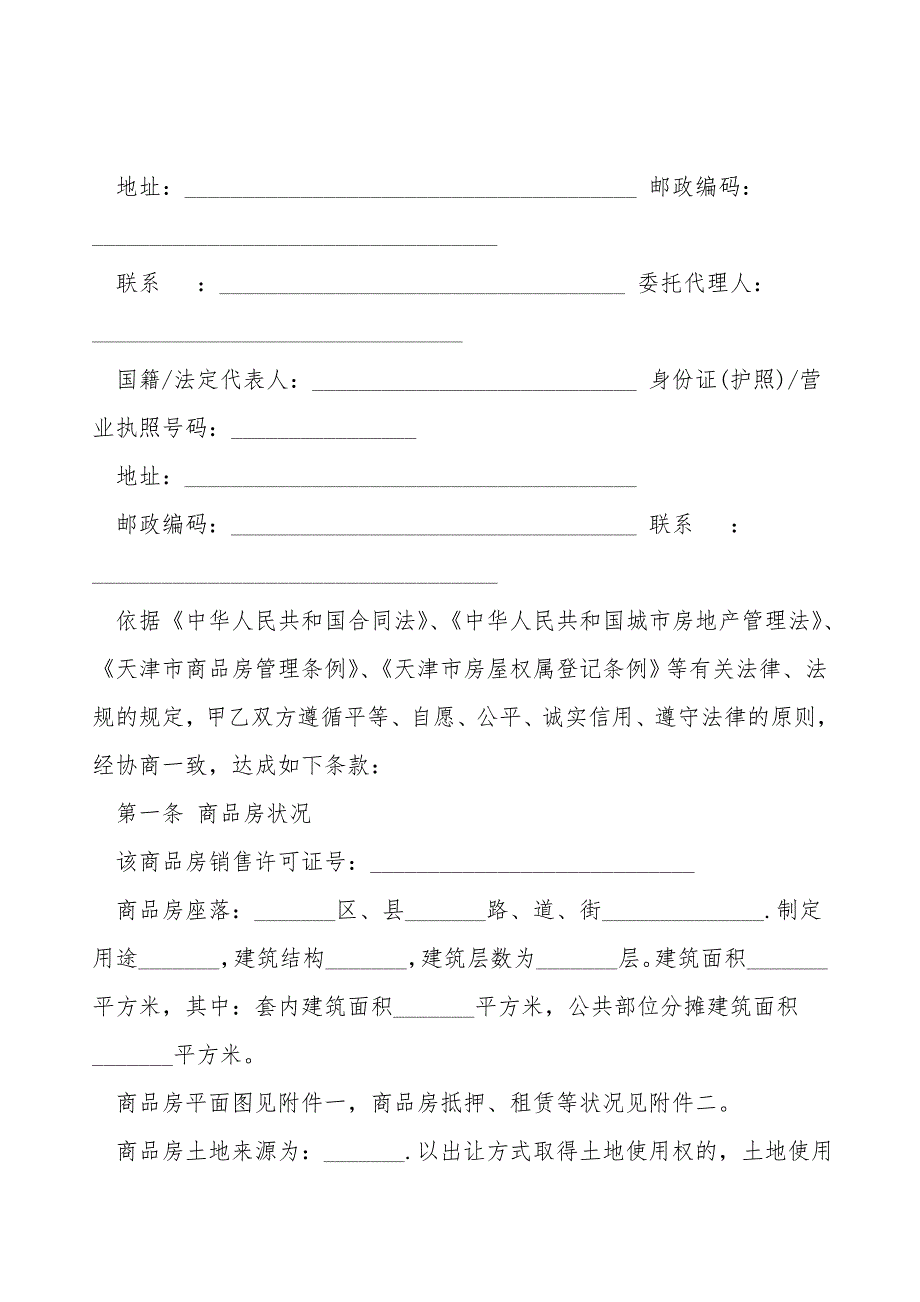 地址：_______________________________________ 邮政编码：
___________________________________
联系　：___________________________________ 委托代理人：
________________________________
国籍/法定代表人：____________________________ 身份证(护照)/营
业执照号码：________________
地址：_______________________________________
邮政编码：___________________________________ 联系　：
___________________________________
依据《中华人民共和国合同法》、《中华人民共和国城市房地产管理法》、
《天津市商品房管理条例》、《天津市房屋权属登记条例》等有关法律、法
规的规定，甲乙双方遵循平等、自愿、公平、诚实信用、遵守法律的原则，
经协商一致，达成如下条款：
第一条 商品房状况
该商品房销售许可证号：____________________________
商品房座落：_______区、县_______路、道、街______________.制定
用途_______，建筑结构_______，建筑层数为_______层。建筑面积_______
平方米，其中：套内建筑面积_______平方米，公共部位分摊建筑面积
_______平方米。
商品房平面图见附件一，商品房抵押、租赁等状况见附件二。
商品房土地来源为：_______.以出让方式取得土地使用权的，土地使用